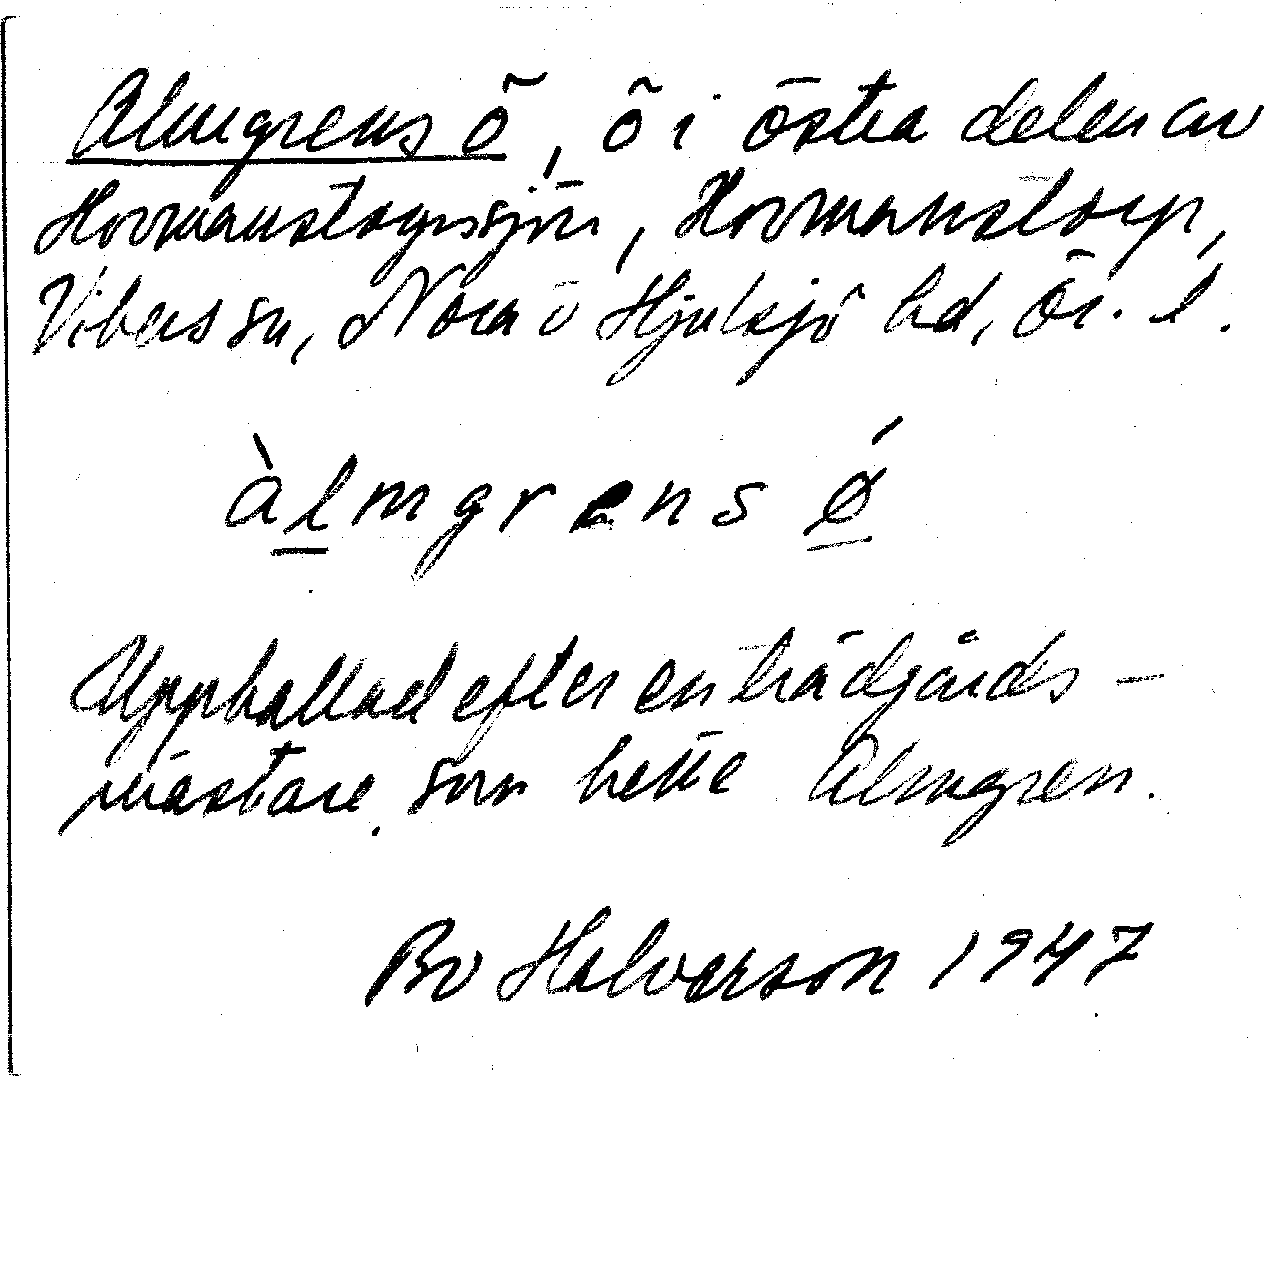 Almgrens ö, ö i östra delen av
Hovmanstorpssjön, Hovmanstorp,
Vibers sn, Nora o Hjulsjö hd, Ör. l.
àlmgrens ǿ
Uppkallad efter en trädgårds-
mästare som hette Almgren.
Bo Halvarson 1947